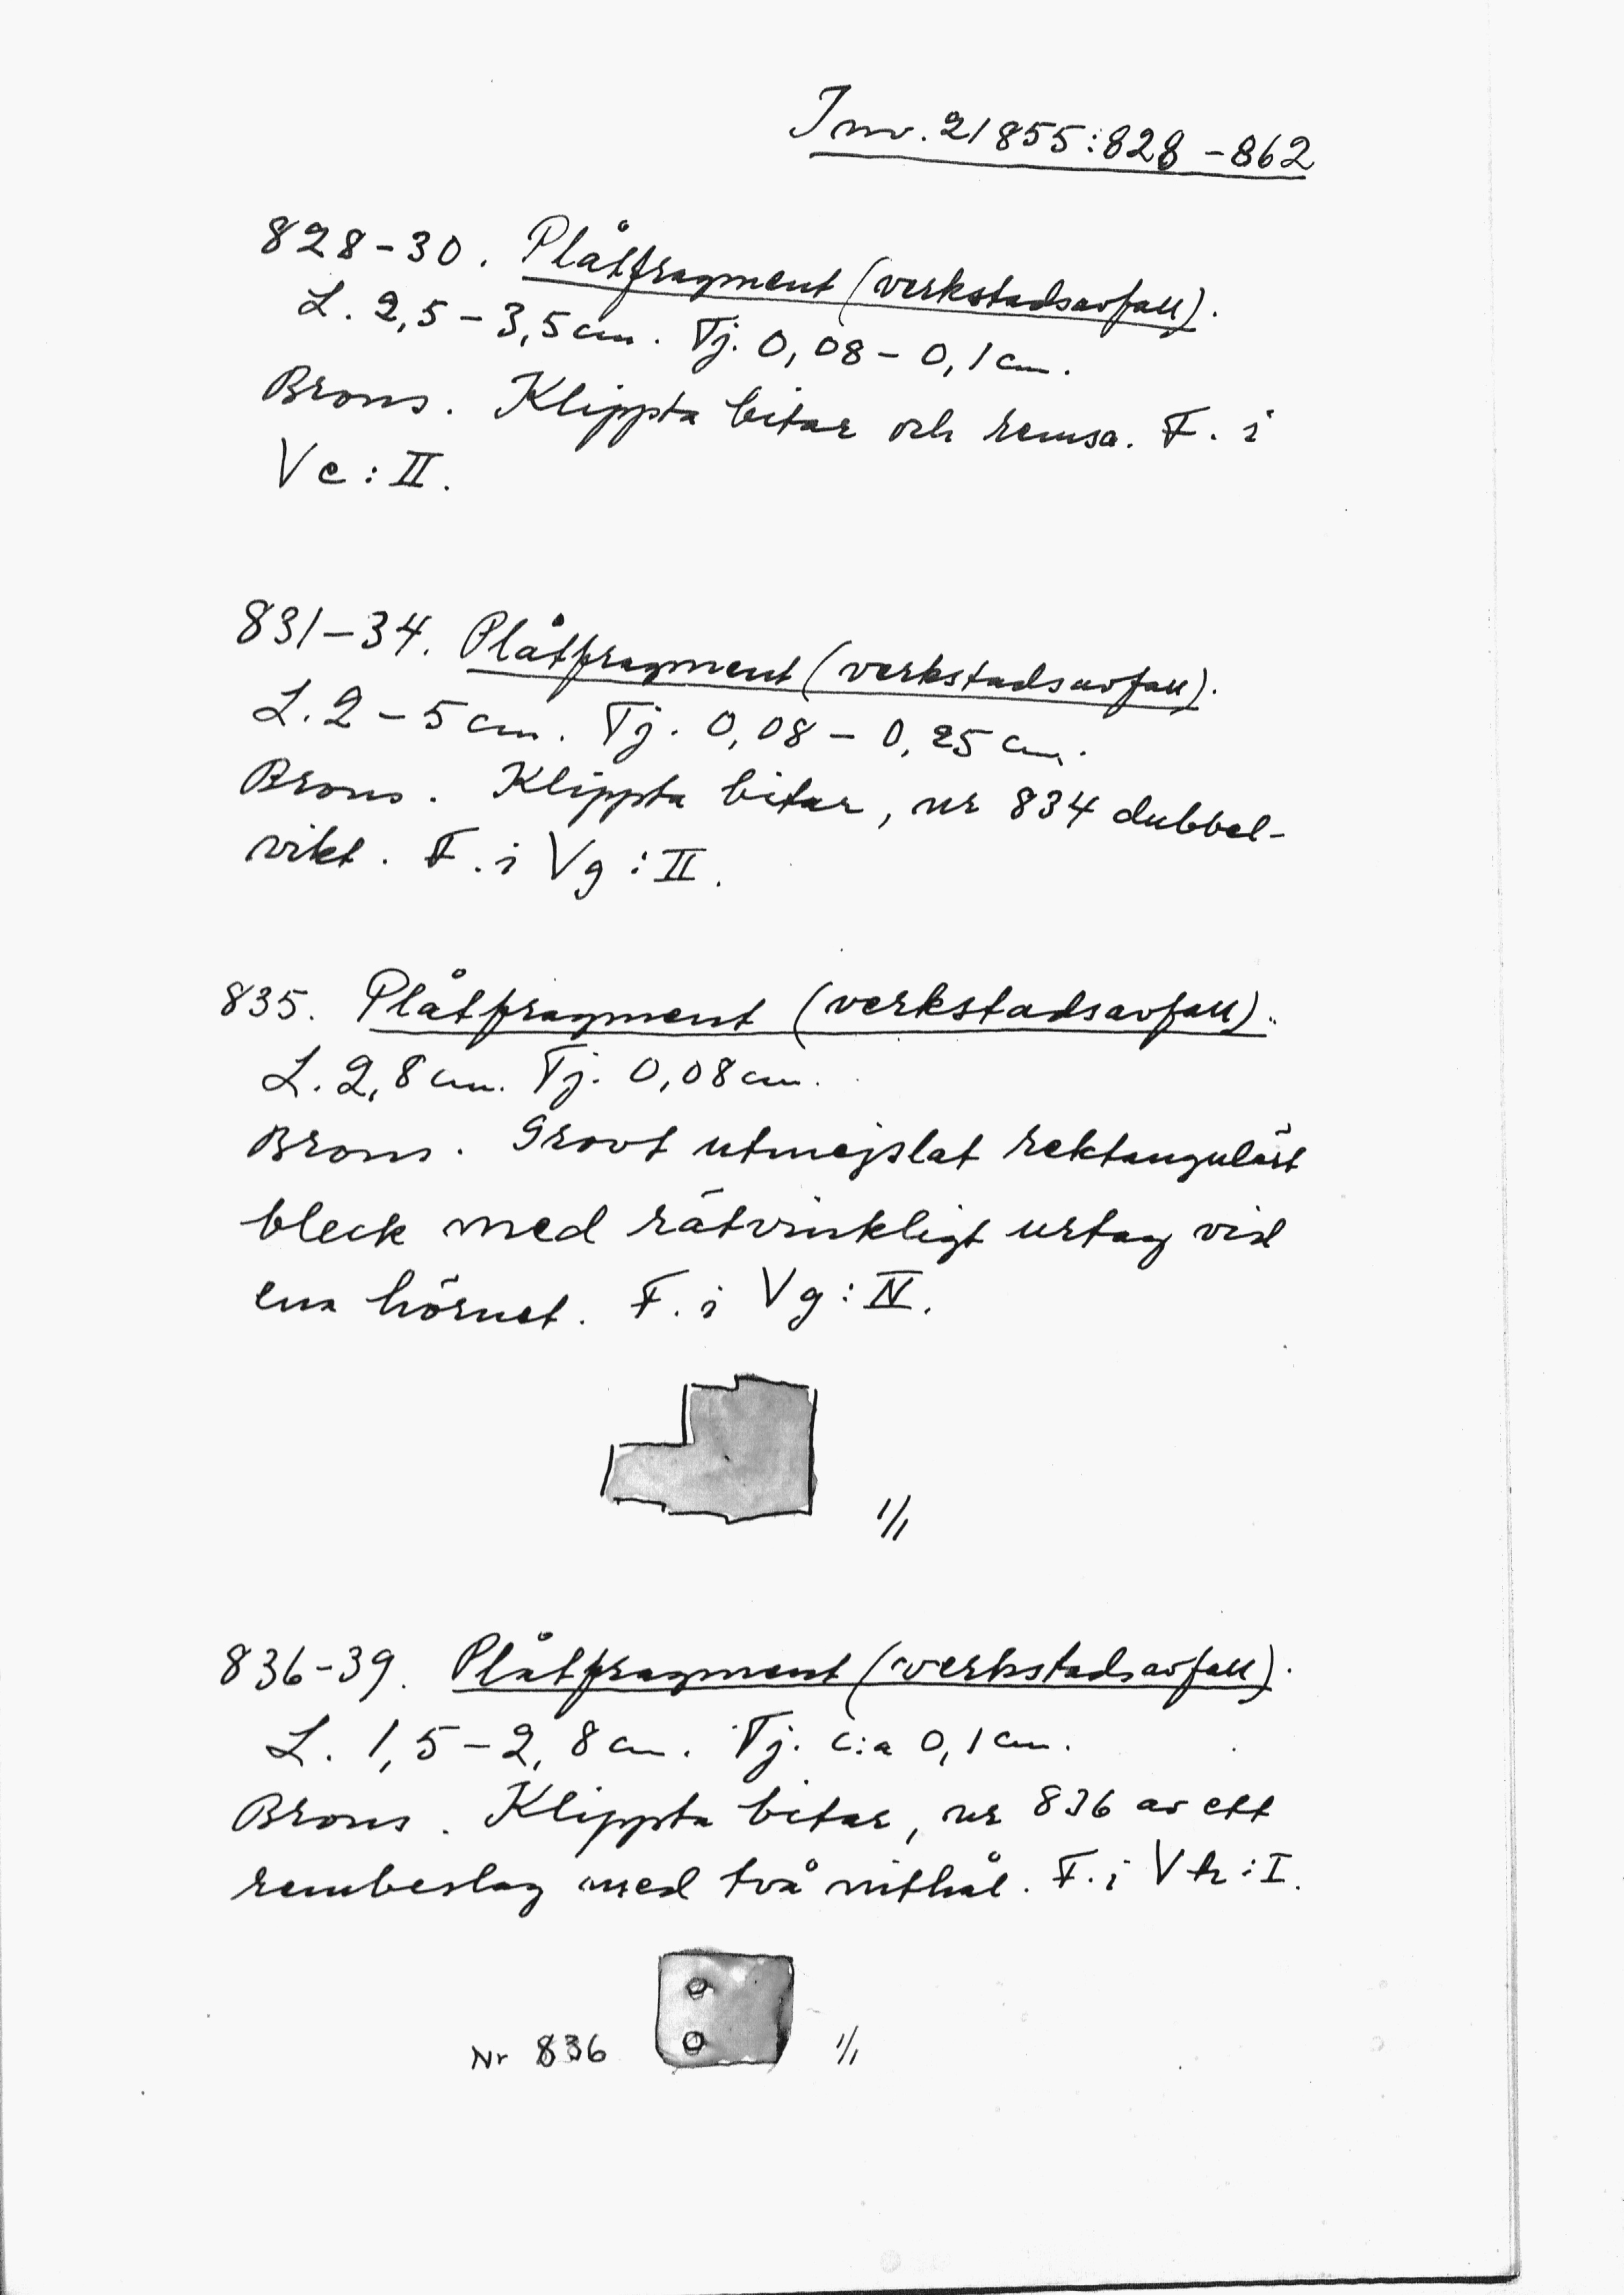 Inv. 21855:828-862
828-30. Plåtfragment (verkstadsavfall).
L. 2,5-3,5 cm. Tj. 0,08-0,1 cm.
Brons. Klippta bitar och remsa. F. i
Ve:II.
831-34. Plåtfragment (verkstadsavfall).
L. 2-5 cm. Tj. 0,08-0,25 cm.
Brons. Klippta bitar, nr 834 dubbel-
vikt. F. i Vg:II.
835. Plåtfragment (verkstadsavfall).
L. 2,8 cm. Tj. 0,08 cm.
Brons. Grovt utmejslat rektangulärt
bleck med rätvinkligt urtag vid
ena hörnet. F. i Vg:IV.
1/1
836-39. Plåtfragment (verkstadsavfall).
L. 1,5-2,8 cm. Tj. c:a 0,1 cm.
Brons. Klippta bitar, nr 836 av ett
rembeslag med två nithål. F. i Vh:I.
Nr 836 1/1